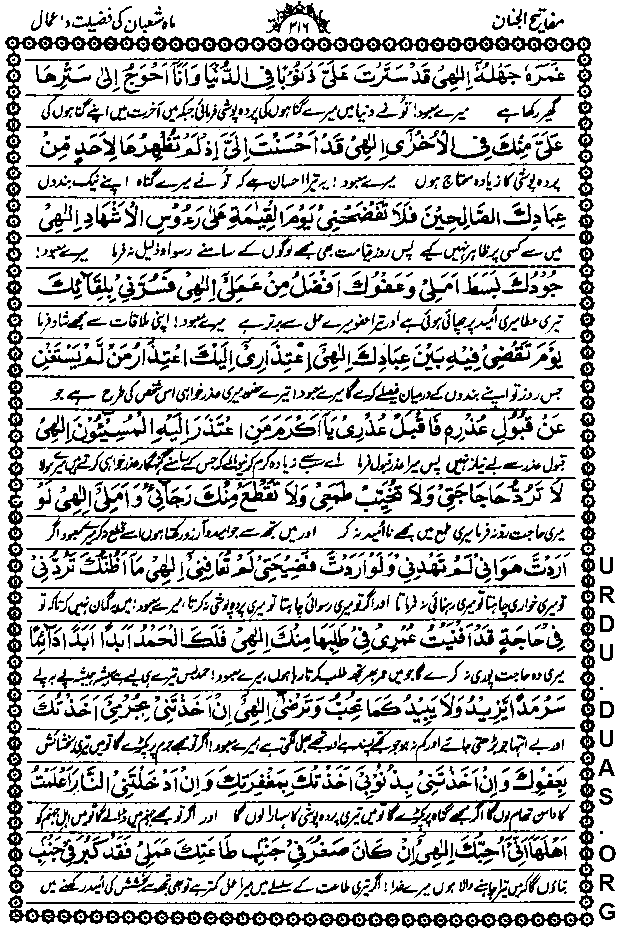 مفاتیح الجنان
۳۱۶
ماہ شعبان کی فضیلت و اعمال
غَمَرَهُ جَهْلُهُ اِلٰهِیْ قَدْ سَتَرْتَ عَلَیَّ ذُنُوْبًا فِی الدُّنْیَا وَاَنَا اَحْوَجُ اِلٰی سَتْرِهَا
گھیر رکھا ہے میرے معبود! تو نے دنیا میں میرے گناہوں کی پردہ پوشی فرمائی جبکہ میں آخرت میں اپنے گناہوں کی
عَلَیَّ مِنْكَ فِی الْاُخْرٰی اِلٰهِیْ قَدْ اَحْسَنْتَ اِلَیَّ اِذْ لَمْ تُظْهِرْهَا لِاَحَدٍ مِنْ
پردہ پوشی کا زیادہ محتاج ہوں میرے معبود! یہ تیرا احسان ہے کہ تو نے میرے گناہ اپنے نیک بندوں
عِبَادِكَ الصَّالِحِیْنَ فَلَا تَفْضَحْنِیْ یَوْمَ الْقِیٰمَةِ عَلٰی رُءُوْسِ الْاَشْهَادِ اِلٰهِیْ
میں سے کسی پر ظاہر نہیں کیے پس روز قیامت بھی مجھے لوگوں کے سامنے رسوا و ذلیل نہ فرما میرے معبود!
جُوْدُكَ بَسَطَ اَمَلِیْ وَعَفْوُكَ اَفْضَلُ مِنْ عَمَلِیْ اِلٰهِیْ فَسُرَّنِیْ بِلِقَآئِكَ
تیری عطا میری امید پر چھائی ہوئی ہے اور تیرا عفو میرے عمل سے برتر ہے میرے معبود! اپنی ملاقات سے مجھے شاد فرما
یَوْمَ تَقْضِیْ فِیْهِ بَیْنَ عِبَادِكَ اِلٰهِیْ اِعْتِذَارِیْ اِلَیْكَ اعْتِذَارُ مَنْ لَمْ یَسْتَغْنِ
جس روز تو اپنے بندوں کے درمیان فیصلے کرے گا میرے معبود! تیرے حضور میری عذر خواہی اس شخص کی طرح ہے جو
عَنْ قَبُوْلِ عُذْرِهٖ فَاقْبَلْ عُذْرِیْ یَا اَكْرَمَ مَنِ اعْتَذَرَ اِلَیْهِ الْمُسِیْٓئُوْنَ اِلٰهِیْ
قبول عذر سے بے نیاز نہیں پس میرا عذر قبول فرما اے سب سے زیادہ کرم کرنے والے کہ جس کے سامنے گنہگار عذر خواہی کرتے ہیں میرے مولا
لَا تَرُدَّ حَاجَتِیْ وَلَا تُخَیِّبْ طَمَعِیْ وَلَا تَقْطَعْ مِنْكَ رَجَآئِیْ وَاَمَلِیْ اِلٰهِیْ لَوْ
میری حاجت رد نہ فرما میری طمع میں مجھے ناامید نہ کر اور میں تجھ سے جو امید و آرزو رکھتا ہوں اسے قطع نہ کر میرے معبود اگر
اَرَدْتَ هَوَانِیْ لَمْ تَهْدِنِیْ وَلَوْ اَرَدْتَ فَضِیْحَتِیْ لَمْ تُعَافِنِیْ اِلٰهِیْ مَا اَظُنُّكَ تَرُدُّنِیْ
تو میری خواری چاہتا تو میری رہنمائی نہ فرماتا اور اگر تو میری رسوائی چاہتا تو میری پردہ پوشی نہ کرتا، میرے معبود! میں یہ گمان نہیں کرتا کہ تو
فِیْ حَاجَةٍ قَدْ اَفْنَیْتُ عُمْرِیْ فِیْ طَلَبِهَا مِنْكَ اِلٰهِیْ فَلَكَ الْحَمْدُ اَبَدًا اَبَدًا دَآئِمًا
میری وہ حاجت پوری نہ کرے گا جو میں عمر بھر تجھ سے طلب کرتا رہا ہوں، میرے معبود! حمد بس تیرے ہی لیے ہے ہمیشہ ہمیشہ پے بہ پے
سَرْمَدًا یَّزِیْدُ وَلَا یَبِیْدُ كَمَا تُحِبُّ وَتَرْضٰی اِلٰهِیْ اِنْ اَخَذْتَنِیْ بِجُرْمِیْ اَخَذْتُكَ
اور بے انتہا جو بڑھتی جائے اور کم نہ ہو جو تجھے پسند ہے اور تجھے بھلی لگتی ہے، میرے معبود! اگر تو مجھے جرم پر پکڑے گا تو میں تیری بخشش
بِعَفْوِكَ وَاِنْ اَخَذْتَنِیْ بِذُنُوْبِیْ اَخَذْتُكَ بِمَغْفِرَتِكَ وَاِنْ اَدْخَلْتَنِی النَّارَ اَعْلَمْتُ
کا دامن تھام لوں گا اگر مجھے گناہ پر پکڑے گا تو میں تیری پردہ پوشی کا سہارا لوں گا اور اگر تو مجھے جہنم میں ڈالے گا تو میں اہل جہنم کو
اَهْلَهَا اَنِّیْ اُحِبُّكَ اِلٰهِیْ اِنْ كَانَ صَغُرَ فِیْ جَنْبِ طَاعَتِكَ عَمَلِیْ فَقَدْ كَبُرَ فِیْ جَنْبِ
بتاؤں گا کہ میں تیرا چاہنے والا ہوں میرے خدا! اگر تیری طاعت کے سلسلے میں میرا عمل کمتر ہے تو بھی تجھ سے بخشش کی امید رکھنے میں
URDU.DUAS.ORG